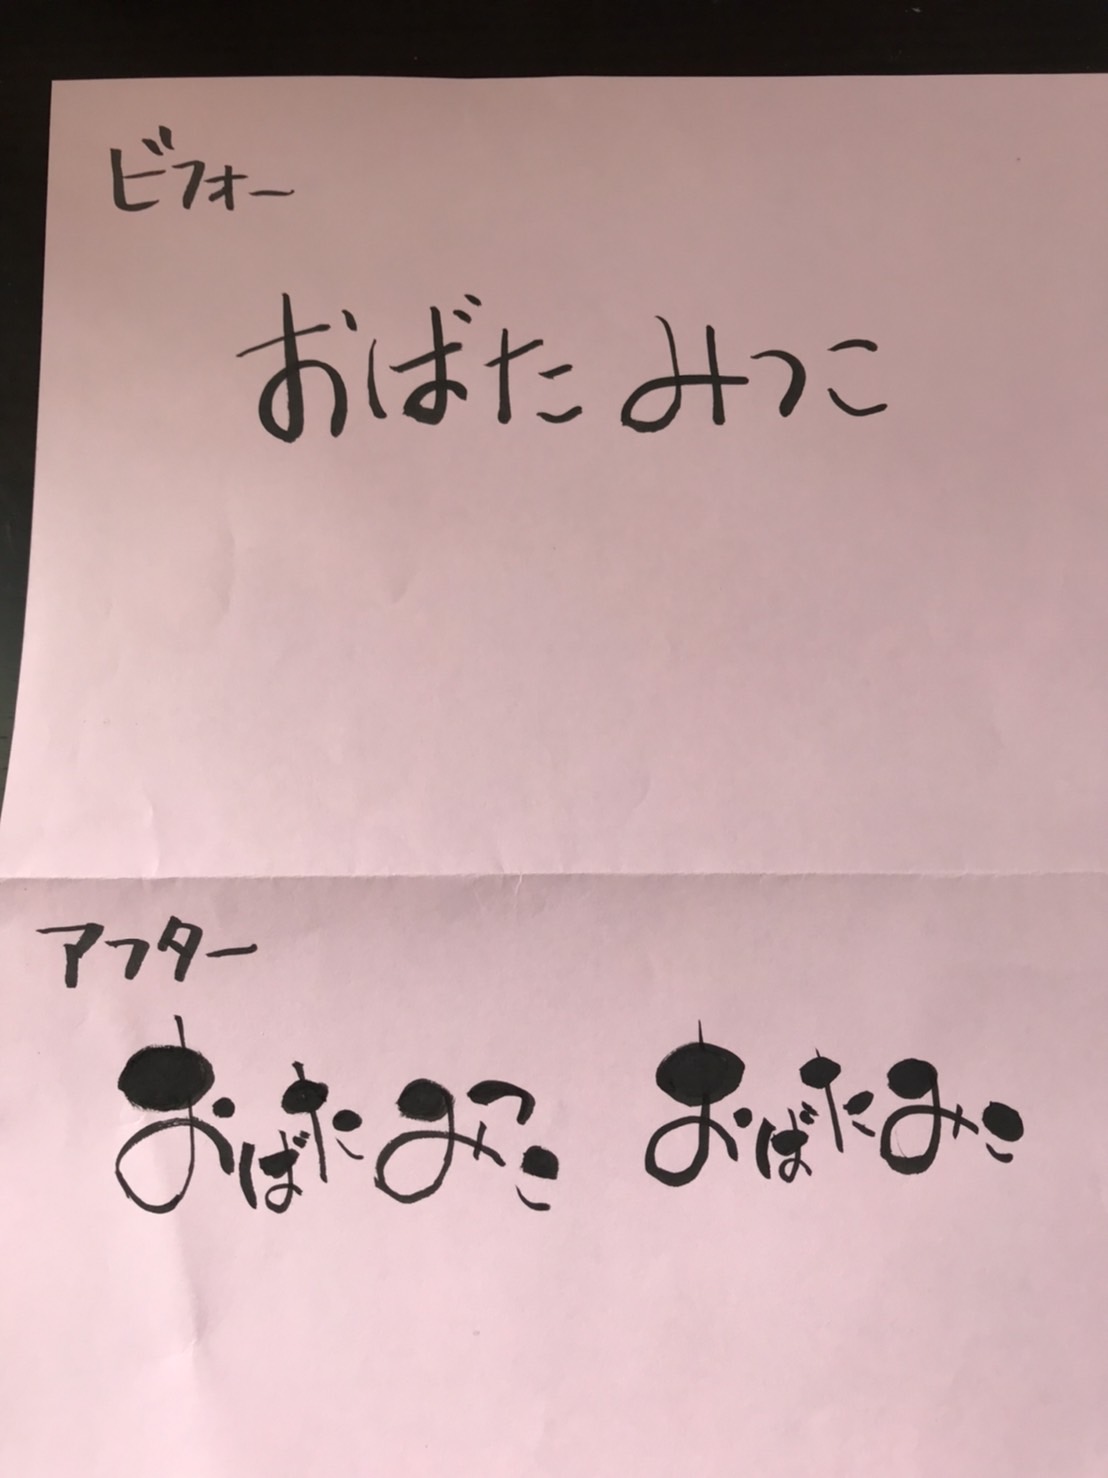 ビフォー
おばた みつこ
アフター
おばたみつこ おばたみこ